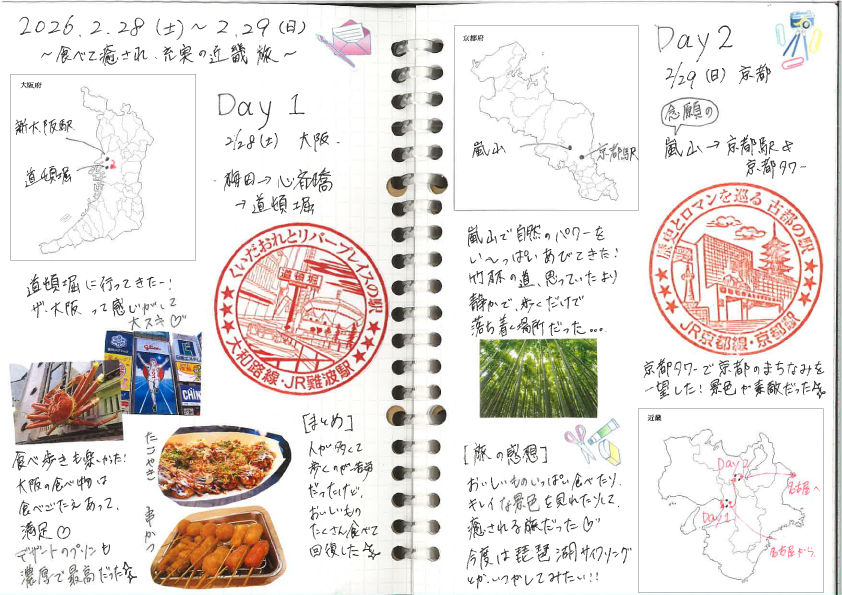 2026.2.28(土)～2.29(日)
～食べて癒され、充実の近畿旅～
大阪府
新大阪駅
道頓堀
2
Day 1
2/28(土) 大阪.
梅田→心斎橋
→道頓堀
くいだおれとリバープレイスの駅
道頓堀
大和路線・JR難波駅
道頓堀に行ってきたー!
ザ・大阪って感じがして
大スキ♡
glico
食べ歩きも楽しかった!
大阪の食べ物は
食べごたえあって、
満足♡
デザートのプリンも
濃厚で最高だった☆
たこやき
串かつ
[まとめ]
人が多くて
歩くのが苦労
だったけど、
おいしいもの
たくさん食べて
回復した☆
京都府
嵐山
京都駅
Day2
2/29(日) 京都
念願の
嵐山→京都駅&
京都タワー
歴史とロマンを巡る 古都の駅
JR京都線・京都駅
嵐山で自然のパワーを
い～っぱいあびてきた!
竹林の道、思っていたより
静かで、歩くだけで
落ち着く場所だった...
京都タワーで京都のまちなみを
一望した!景色が素敵だった☆
[旅の感想]
おいしいものいっぱい食べたり、
キレイな景色を見れたりして、
癒される旅だった♡
今度は琵琶湖サイクリング
とか、いつかしてみたい!!
近畿
Day2
名古屋へ
Day1
名古屋から